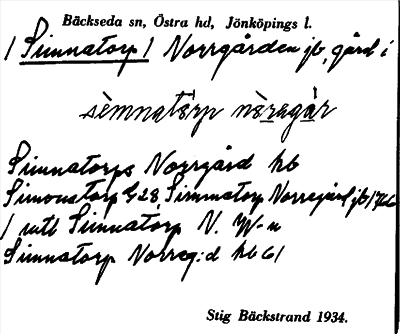 Bäckseda sn, Östra hd, Jönköpings l.
/ Simnatorp / Norrgården jb, gård i
sèmnatårp nòragår
Simnatorps Norrgård hb
Simonstorp 28, Simmatorp Norregård jb 1746
/ utt Simnatorp N.
Simnatorp Norreg:d hb 61
Stig Bäckstrand 1934.